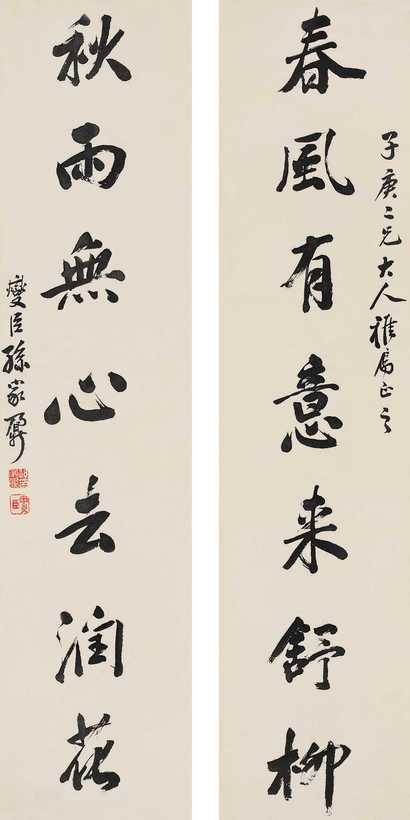 子庚二兄大人雅属正之
春風有意来舒柳
秋雨無心去潤花
燮臣孫家鼐